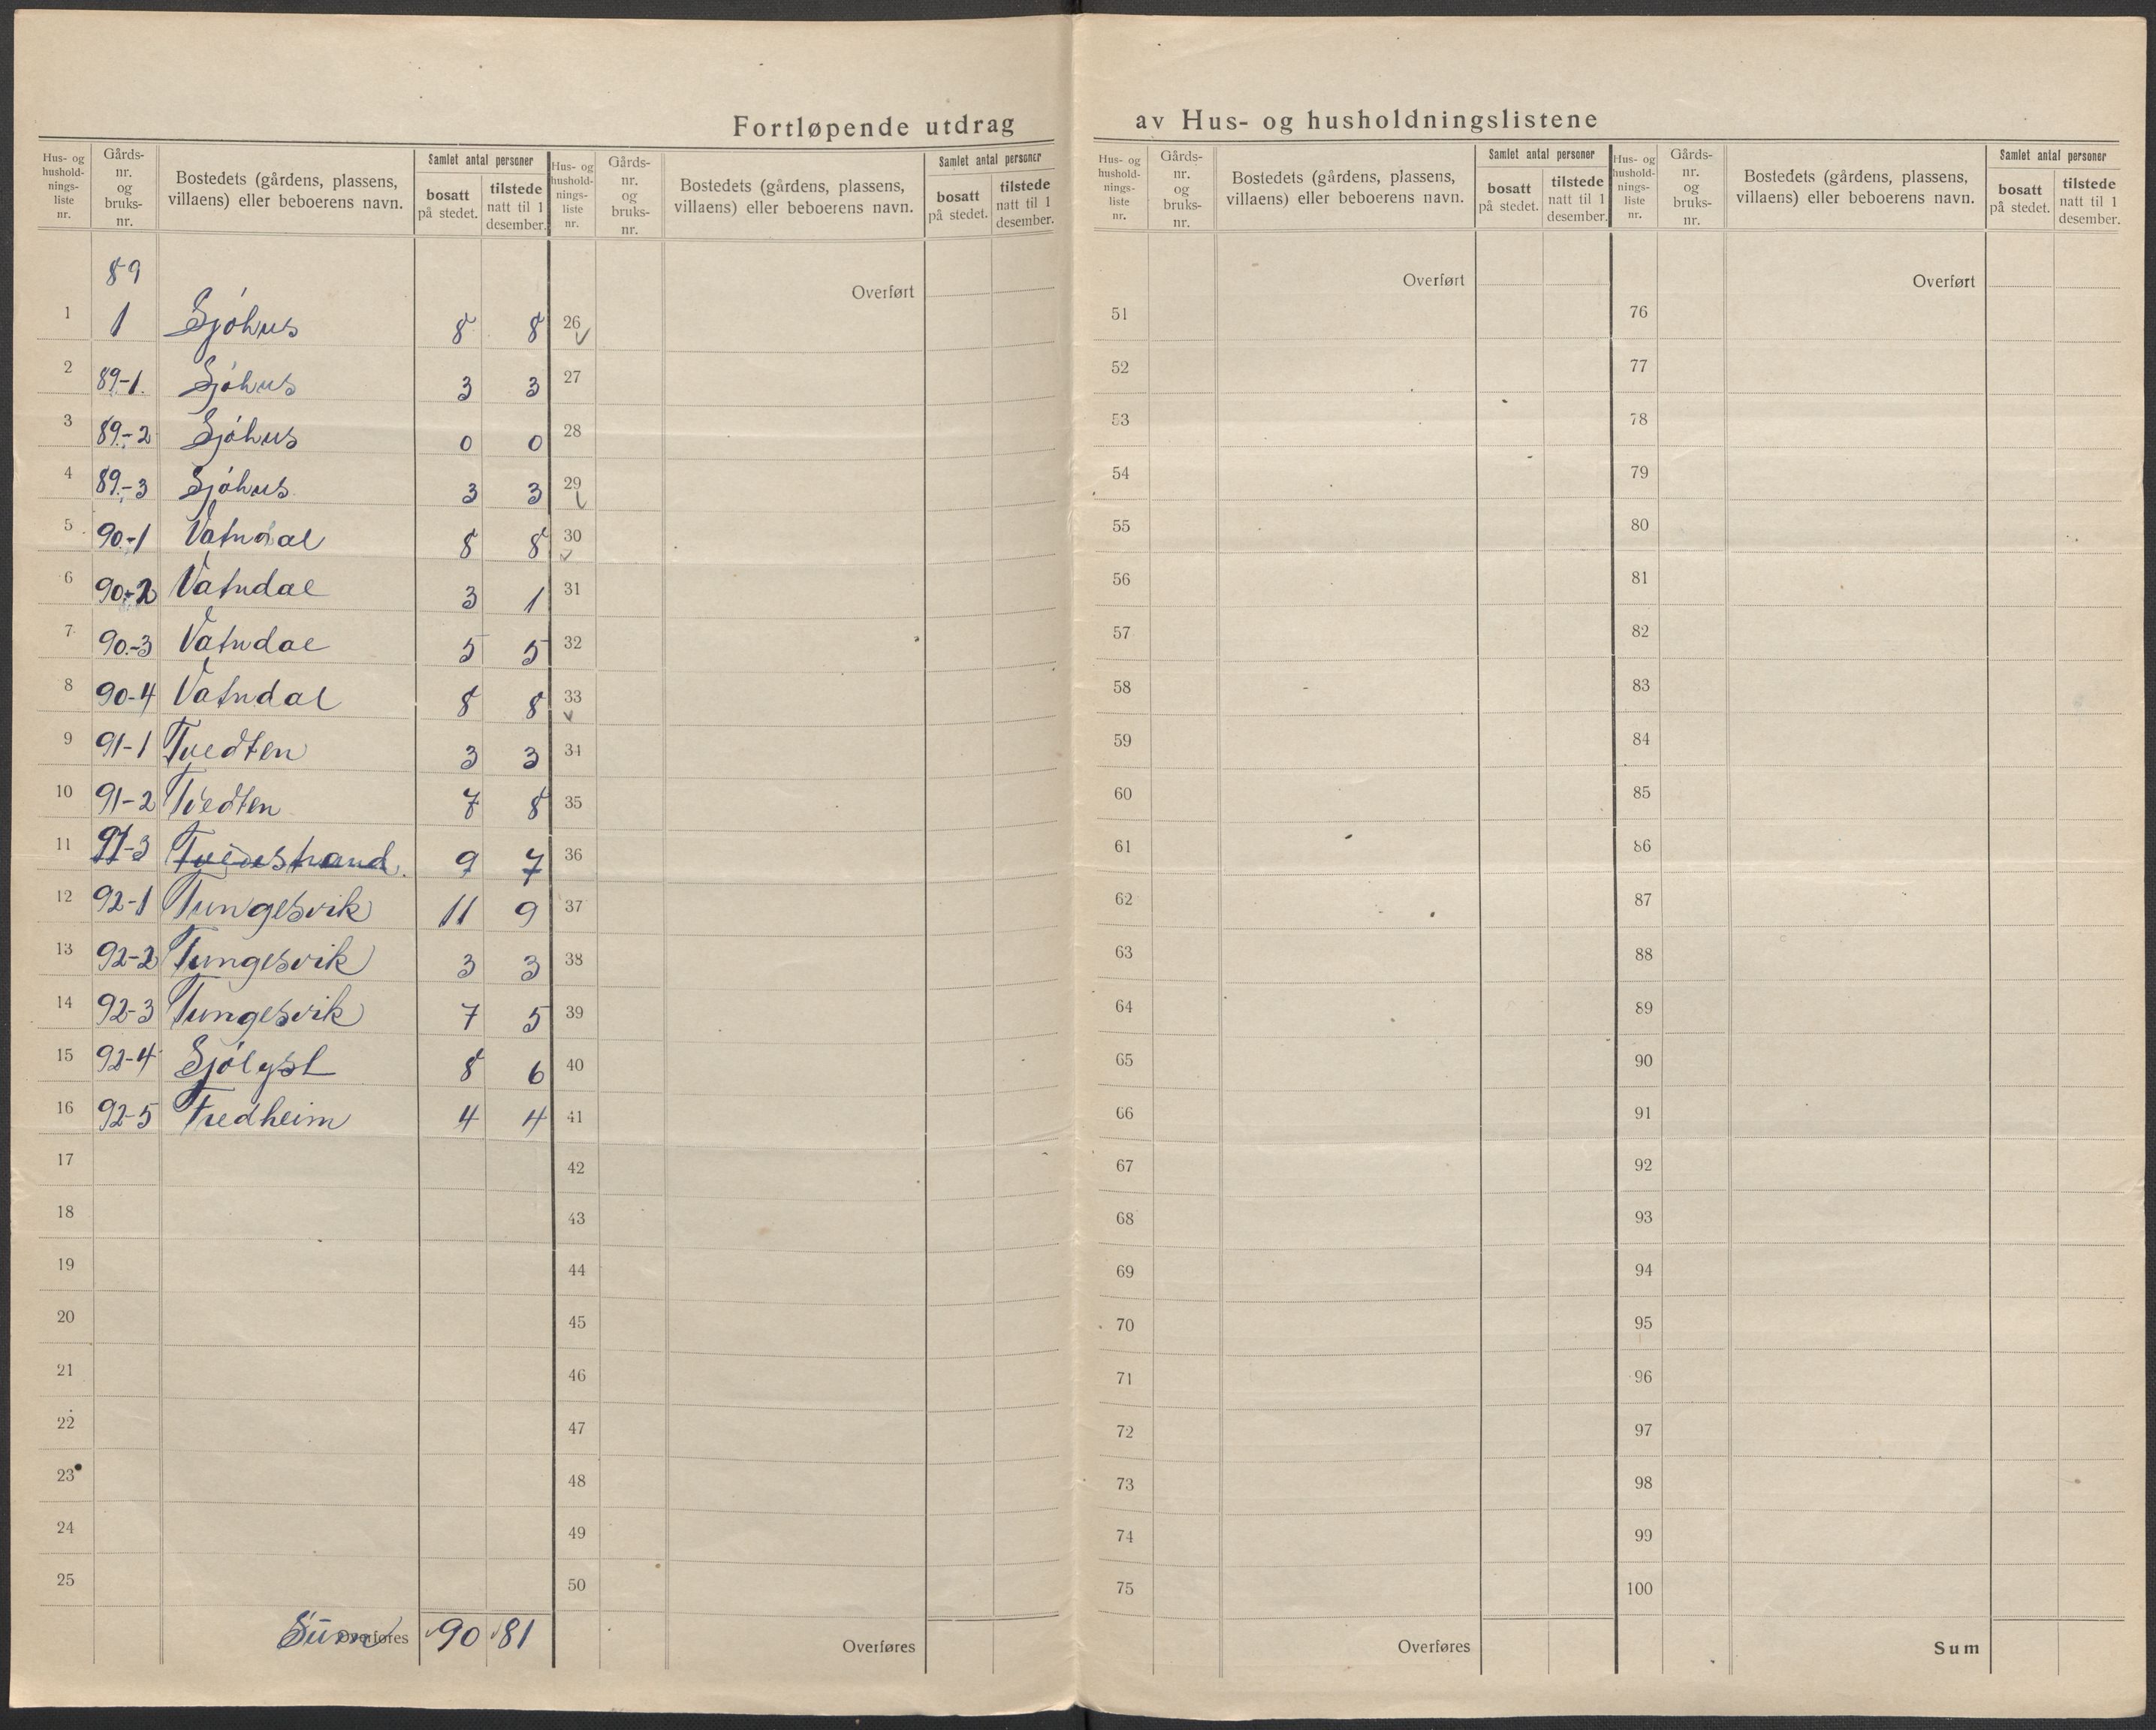 Fortløpende utdrag av Hus- og husholdningslistene
Hus- og hushold-nings-liste nr. Gårds-nr. og bruks-nr. Bostedets (gårdens, plassens, villaens) eller beboerens navn. Samlet antal personer bosatt på stedet. tilstede natt til 1 desember.
89
1 1 Sjöhus 8 8
2 89-1. Sjöhus 3 3
3 89.-2 Sjöhus 0 0
4 89.-3 Sjöhus 3 3
5 90.-1 Vatndal 8 8
6 90.-2 Vatndal 3 1
7 90.-3 Vatndal 5 5
8 90-4 Vatndal 8 8
9 91-1 Tvedten 3 3
10 91-2 Tvedten 7 8
11 91-3 Tvedestrand. 9 7
12 92-1 Tungesvik 11 9
13 92-2 Tungesvik 3 3
14 92-3 Tungesvik 7 5
15 92-4 Sjölyst 8 6
16 92-5 Fredheim 4 4
17
18
19
20
21
22
23
24
25
Sum Overføres 90 81
Hus- og hushold-nings-liste nr. Gårds-nr. og bruks-nr. Bostedets (gårdens, plassens, villaens) eller beboerens navn. Samlet antal personer bosatt på stedet. tilstede natt til 1 desember.
Overført
26
27
28
29
30
31
32
33
34
35
36
37
38
39
40
41
42
43
44
45
46
47
48
49
50
Overføres
Hus- og hushold-nings-liste nr. Gårds-nr. og bruks-nr. Bostedets (gårdens, plassens, villaens) eller beboerens navn. Samlet antal personer bosatt på stedet. tilstede natt til 1 desember.
Overført
51
52
53
54
55
56
57
58
59
60
61
62
63
64
65
66
67
68
69
70
71
72
73
74
75
Overføres
Hus- og hushold-nings-liste nr. Gårds-nr. og bruks-nr. Bostedets (gårdens, plassens, villaens) eller beboerens navn. Samlet antal personer bosatt på stedet. tilstede natt til 1 desember.
Overført
76
77
78
79
80
81
82
83
84
85
86
87
88
89
90
91
92
93
94
95
96
97
98
99
100
Sum